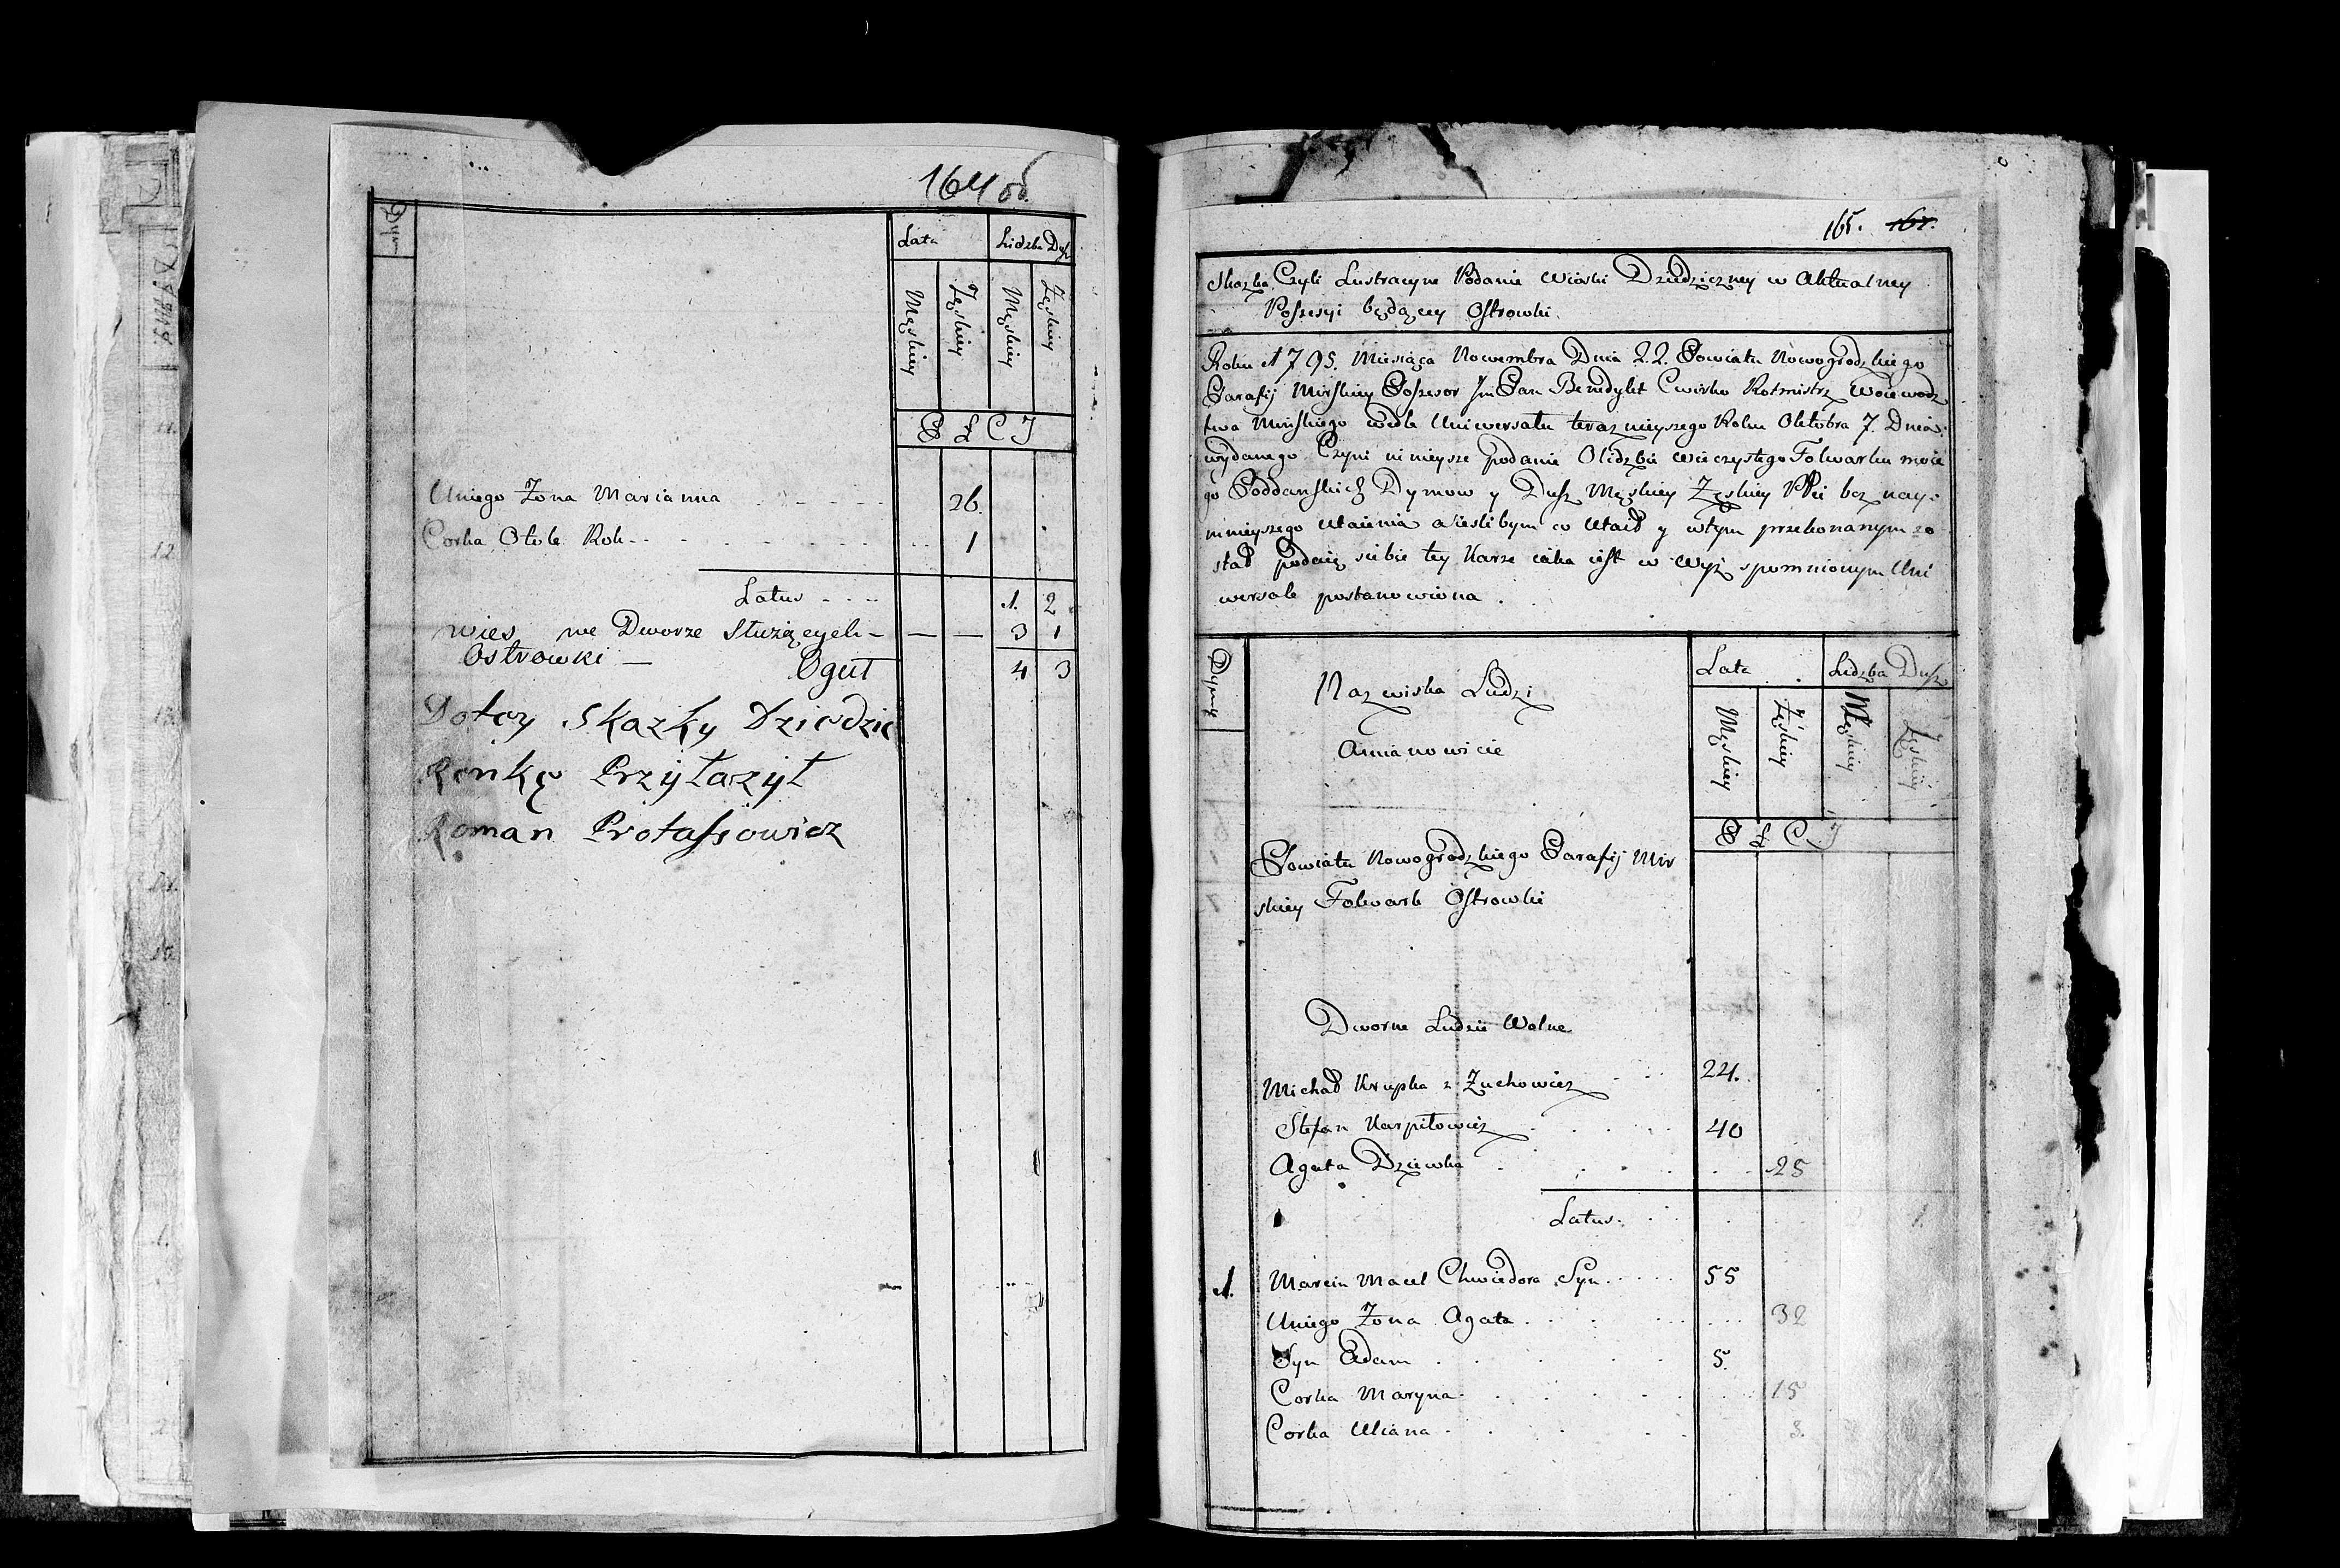 164 об.
Dym
Lata Lidzba Dusz
Męskiey Żęskiey Męskiey Żęskiey
P L C I
Uniego Żona Marianna 26.
Corka Otole Rok 1
Latus 1. 2
wies we Dworze Służących — — — 3 1
Ostrowki — Oguł 4 3
Dotey Skazky Dziedzic
Renkę Przyłazył
Roman Protassowicz
165. 167.
Skazka Czyli Lustracyne Podanie Wioski Dziedziczney w Aktualney
Possesyi będącey Ostrowki.
Roku 1795. Miesiąca Nowembra Dnia 22. Powiatu Nowogrodzkiego
Parafij Mirskiey Possesor Jm Pan Benedykt Cwirko Rotmistrz Woiewodz
twa Mińskiego wedle Uniwersału teraznieyszego Roku Oktobra 7. Dnia
wydanego Czyni ninieysze podanie Olidzbie wieczystego Folwarku moie
go Poddanskich Dymow y Dusz Męskiey Żęskiey Płci bez nay:
mnieyszego utaienia a ieslibym co Utaił y wtym przekonanym zo
stał podaię siebie tey Karze iaka iest w Wyż spomnionym Uni
wersale postanowiona.
Dymy
Nazwiska Ludzi
Amianowicie
Lata Lidzba Dusz
Męskiey Żęskiey Męskiey Żęskiey
P L C I
Powiatu Nowogrodzkiego Parafij Mir
skiey Folwark Ostrowki
Dworne Ludzie Wolne
Michał Krupka z Żuchowicz 24.
Stefan Karpiłowicz 40
Agata Dziewka 25
Latus. 1.
1. Marcin Macel Chwiedora Syn 55
Uniego Żona Agata 32
Syn Adam 5.
Corka Maryna 15
Corka Uliana 3.